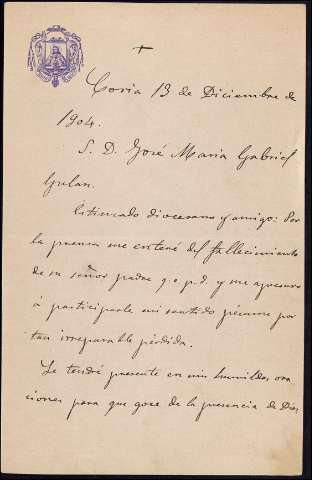 +
Coria 13 de Diciembre de
1904.
S. D. José Maria Gabriel
Galan.
Estimado diocesano y amigo: Por
la prensa me enteré del fallecimiento
de su señor padre q. e. p. d. y me apresuro
á participarle mi sentido pésame por
tan irreparable pérdida.
Le tendré presente en mis humildes ora-
ciones para que goce de la presencia de Dios